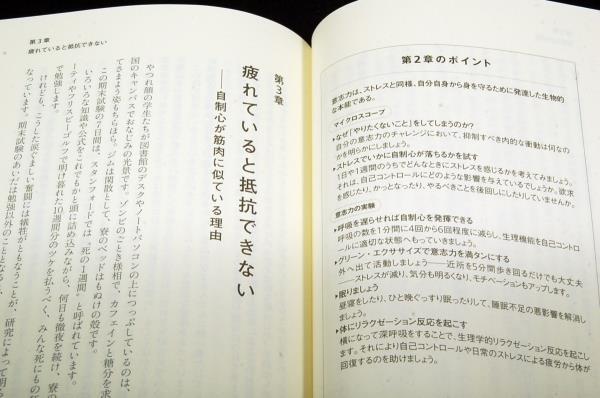 第2章のポイント
意志力は、ストレスと同様、自分自身から身を守るために発達した生物的
な本能である。
マイクロスコープ
▶なぜ「やりたくないこと」をしてしまうのか?
自分の意志力のチャレンジにおいて、抑制すべき内的な衝動は何なの
かを明らかにしましょう。
▶ストレスでいかに自制心が落ちるかを試す
1日や1週間のうちでどんなときにストレスを感じるかを考えてみましょう。
それは、自己コントロールにどのような影響を与えているでしょうか。欲求
を感じたり、かっとなったり、やるべきことを後回しにしたりしていませんか。
意志力の実験
▶呼吸を遅らせれば自制心を発揮できる
呼吸の数を1分間に4回から6回程度に減らし、生理機能を自己コントロ
ールに適切な状態へもっていきましょう。
▶グリーン・エクササイズで意志力を満タンにする
外へ出て活動しましょう――近所を5分間歩き回るだけでも大丈夫
――ストレスが減り、気分も明るくなり、モチベーションもアップします。
▶眠りましょう
昼寝をしたり、ひと晩ぐっすり眠ったりして、睡眠不足の悪影響を解消し
ましょう。
▶体にリラクゼーション反応を起こす
横になって深呼吸をすることで、生理学的リラクゼーション反応を起こし
ます。それにより自己コントロールや日常のストレスによる疲労から体が
回復するのを助けましょう。
第3章
疲れていると抵抗できない
第3章
疲れていると抵抗できない
――自制心が筋肉に似ている理由
やつれ顔の学生たちが図書館のデスクやノートパソコンの上につっぷしているのは、
国のキャンパスでおなじみの光景です。ゾンビのごとき様相で、カフェインと糖分を求
てさまよう姿もちらほら。ジムは閑散として、寮のベッドはもぬけの殻です。
この期末試験の7日間は、スタンフォードでは"死の1週間"と呼ばれています。
いろいろな知識や公式をこれでもかと頭に詰め込みながら、何日も徹夜を続け、寮の
ーティやフリスビーゴルフで明け暮れた10週間分のツケを払うべく、みんな死にもの狂
で勉強します。
けれども、こうした涙ぐましい奮闘には犠牲がともなうことが、研究によって明ら
なっています。期末試験のあいだは勉強以外のこととなると、